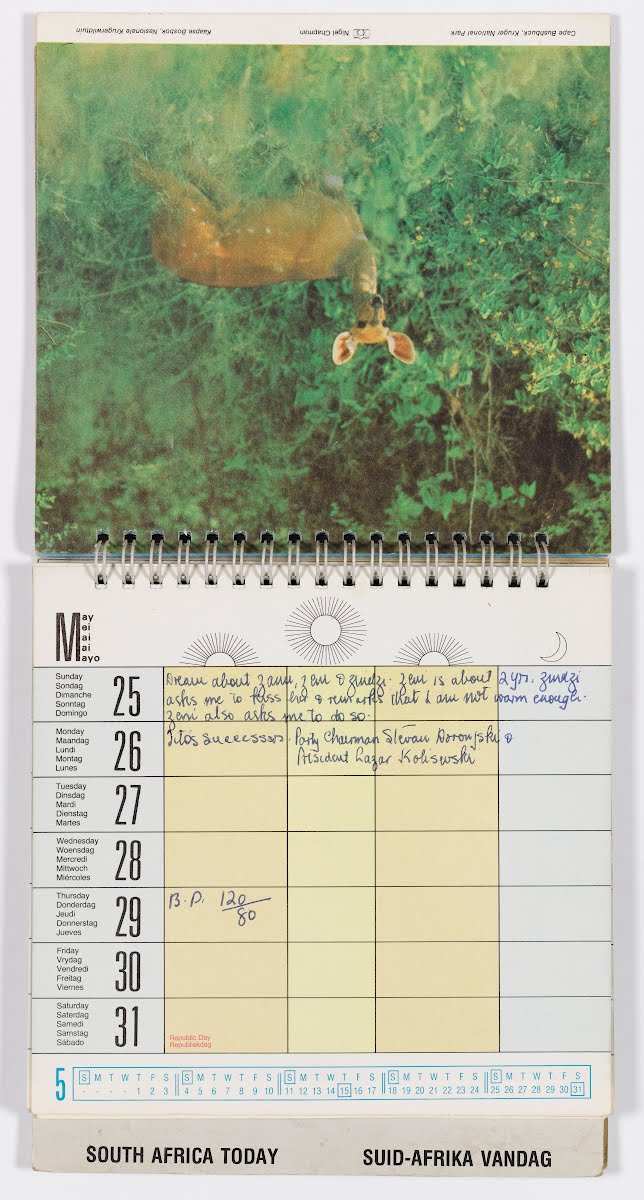 Cape Bushbuck, Kruger National Park
Nigel Chapman
Kaapse Bosbok, Nasionale Krugerwildtuin
May
Mei
Mai
Mai
Mayo
Sunday
Sondag
Dimanche
Sonntag
Domingo
25
Dream about Zami, Zeni & Zindzi. Zeni is about 2 yrs. Zindzi
asks me to kiss her & remarks that I am not warm enough.
Zeni also asks me to do so.
Monday
Maandag
Lundi
Montag
Lunes
26
Tito's successors. Party Chairman Stevan Doronjski &
President Lazar Kolisevski
Tuesday
Dinsdag
Dienstag
Mardi
Martes
27
Wednesday
Woensdag
Mercredi
Mittwoch
Miércoles
28
Thursday
Donderdag
Jeudi
Donnerstag
Jueves
29
B.P. 120
80
Friday
Vrydag
Vendredi
Freitag
Viernes
30
Saturday
Saterdag
Samedi
Samstag
Sábado
31
Republic Day
Republiekdag
5
S M T W T F S S M T W T F S S M T W T F S S M T W T F S S M T W T F S
- - - - 1 2 3 4 5 6 7 8 9 10 11 12 13 14 15 16 17 18 19 20 21 22 23 24 25 26 27 28 29 30 31
SOUTH AFRICA TODAY SUID-AFRIKA VANDAG